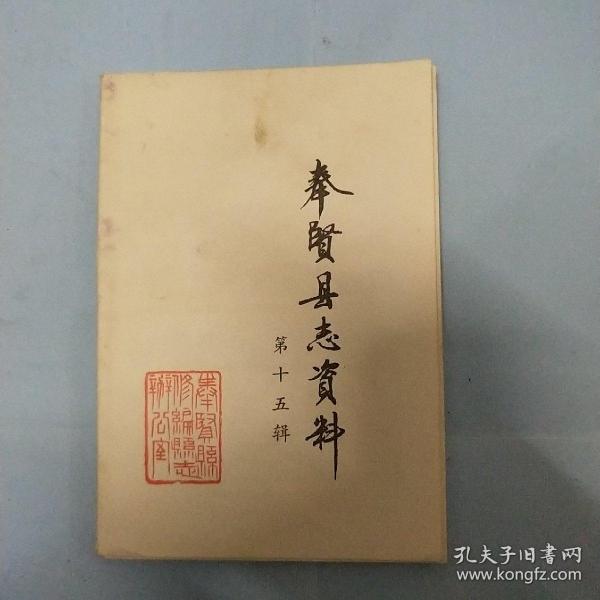 奉賢县志資料
第十五辑
奉賢縣
修編縣志
辦公室
孔夫子旧書网
www.kongfz.com